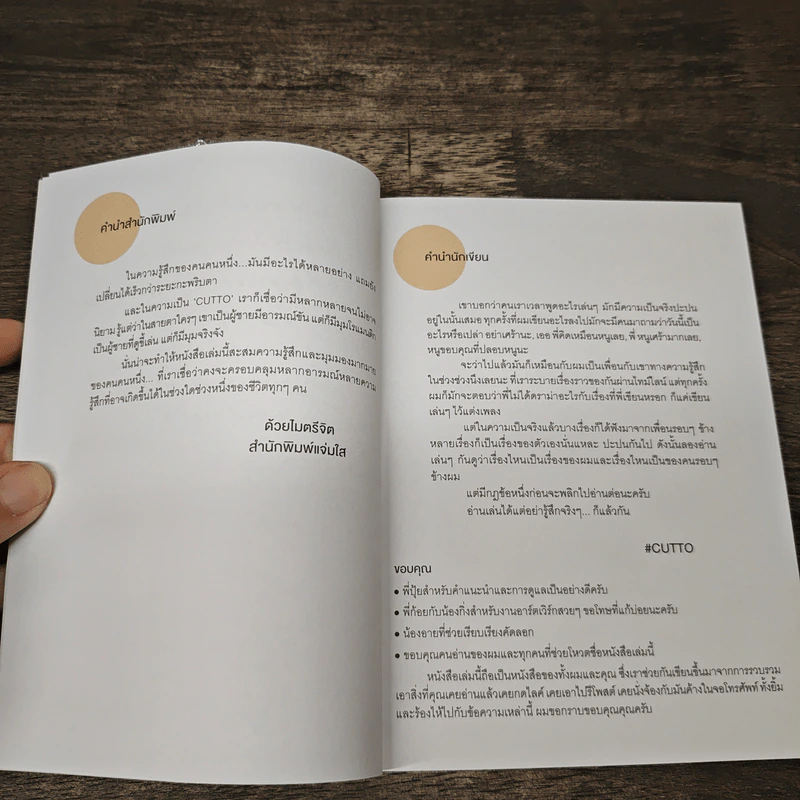 คำนำสำนักพิมพ์
ในความรู้สึกของคนคนหนึ่ง...มันมีอะไรได้หลายอย่าง แถมยัง
เปลี่ยนได้เร็วกว่าระยะกะพริบตา
และในความเป็น 'CUTTO' เราก็เชื่อว่ามีหลากหลายจนไม่อาจ
นิยาม รู้แต่ว่าในสายตาใครๆ เขาเป็นผู้ชายมีอารมณ์ขัน แต่ก็มีมุมโรแมนติก
เป็นผู้ชายที่ดูขี้เล่น แต่ก็มีมุมจริงจัง
นั่นน่าจะทำให้หนังสือเล่มนี้สะสมความรู้สึกและมุมมองมากมาย
ของคนคนหนึ่ง... ที่เราเชื่อว่าคงจะครอบคลุมหลากอารมณ์หลายความ
รู้สึกที่อาจเกิดขึ้นได้ในช่วงใดช่วงหนึ่งของชีวิตทุกๆ คน
ด้วยไมตรีจิต
สำนักพิมพ์แจ่มใส
คำนำนักเขียน
เขาบอกว่าคนเราเวลาพูดอะไรเล่นๆ มักมีความเป็นจริงปะปน
อยู่ในนั้นเสมอ ทุกครั้งที่ผมเขียนอะไรลงไปมักจะมีคนมาถามว่าวันนี้เป็น
อะไรหรือเปล่า อย่าเศร้านะ, เออ พี่คิดเหมือนหนูเลย, พี่ หนูเศร้ามากเลย,
หนูขอบคุณที่ปลอบหนูนะ
จะว่าไปแล้วมันก็เหมือนกับผมเป็นเพื่อนกับเขาทางความรู้สึก
ในช่วงช่วงนึงเลยนะ ที่เราระบายเรื่องราวของกันผ่านไทม์ไลน์ แต่ทุกครั้ง
ผมก็มักจะตอบว่าพี่ไม่ได้ดราม่าอะไรกับเรื่องที่พี่เขียนหรอก ก็แค่เขียน
เล่นๆ ไว้แต่งเพลง
แต่ในความเป็นจริงแล้วบางเรื่องก็ได้ฟังมาจากเพื่อนรอบๆ ข้าง
หลายเรื่องก็เป็นเรื่องของตัวเองนั่นแหละ ปะปนกันไป ดังนั้นลองอ่าน
เล่นๆ กันดูว่าเรื่องไหนเป็นเรื่องของผมและเรื่องไหนเป็นของคนรอบๆ
ข้างผม
แต่มีกฎข้อหนึ่งก่อนจะพลิกไปอ่านต่อนะครับ
อ่านเล่นได้แต่อย่ารู้สึกจริงๆ... ก็แล้วกัน
#CUTTO
ขอบคุณ
• พี่ปุ้ยสำหรับคำแนะนำและการดูแลเป็นอย่างดีครับ
• พี่ก้อยกับน้องกิ่งสำหรับงานอาร์ตเวิร์กสวยๆ ขอโทษที่แก้บ่อยนะครับ
• น้องอายที่ช่วยเรียบเรียงคัดลอก
• ขอบคุณคนอ่านของผมและทุกคนที่ช่วยโหวตชื่อหนังสือเล่มนี้
หนังสือเล่มนี้ถือเป็นหนังสือของทั้งผมและคุณ ซึ่งเราช่วยกันเขียนขึ้นมาจากการรวบรวม
เอาสิ่งที่คุณเคยอ่านแล้วเคยกดไลค์ เคยเอาไปรีโพสต์ เคยนั่งจ้องกับมันด้างในจอโทรศัพท์ ทั้งยิ้ม
และร้องไห้ไปกับข้อความเหล่านี้ ผมขอกราบขอบคุณคุณครับ